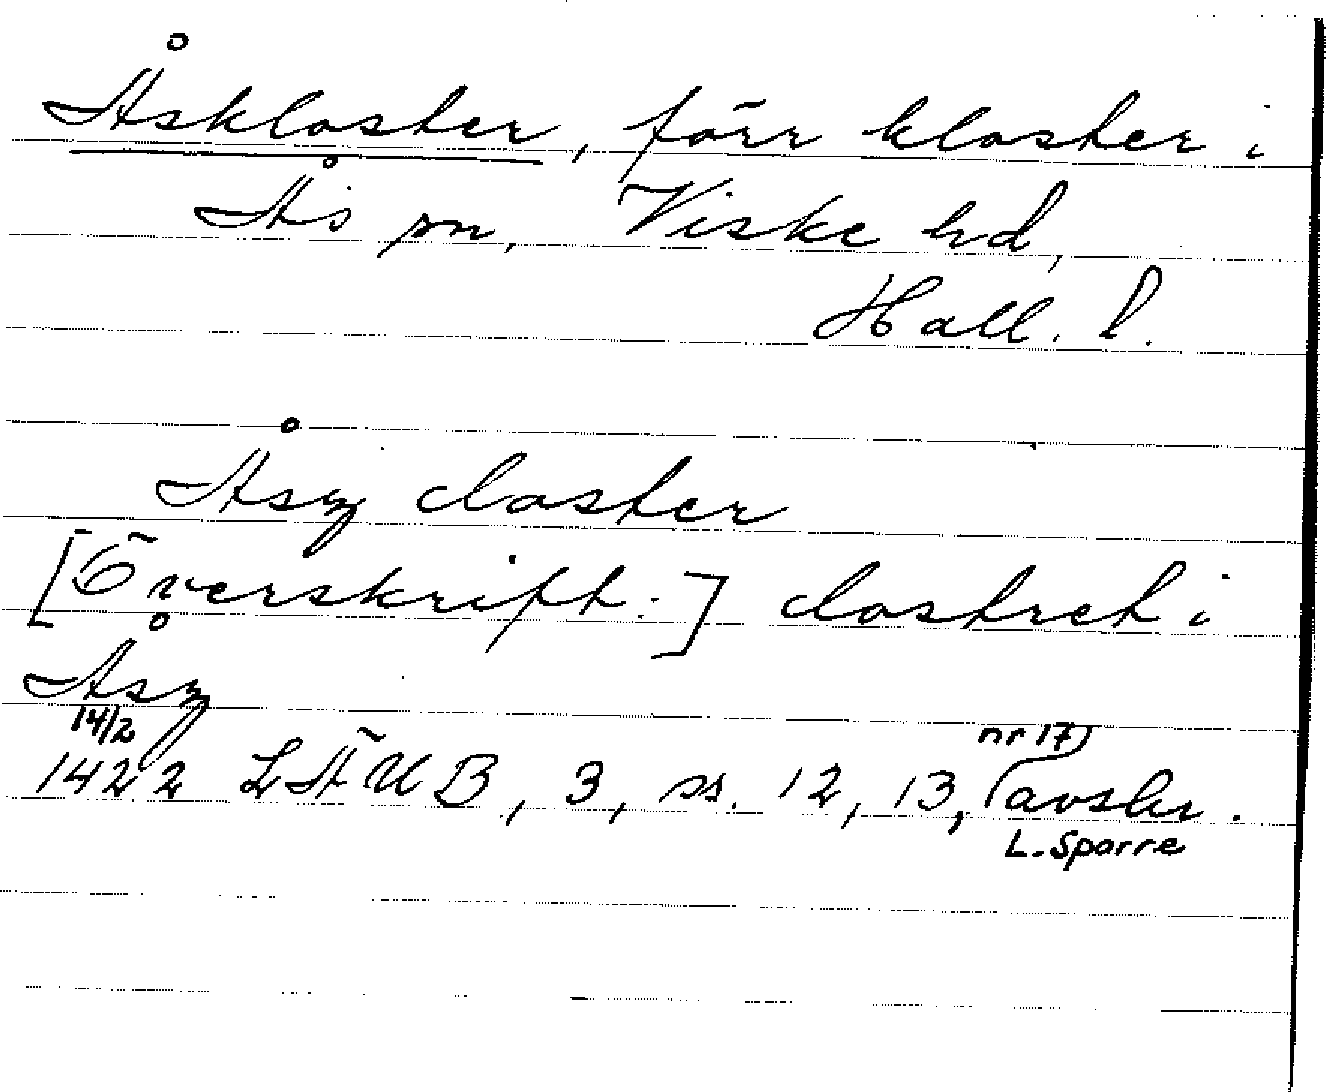 Åskloster, förr kloster i
Ås sn, Viske hd,
Hall. l.
Åsz closter
[Överskrift:] clostret i
Åsz
14/2
1422 LÄUB, 3, ss. 12, 13, (avskr.
nr 17)
L. Sparre